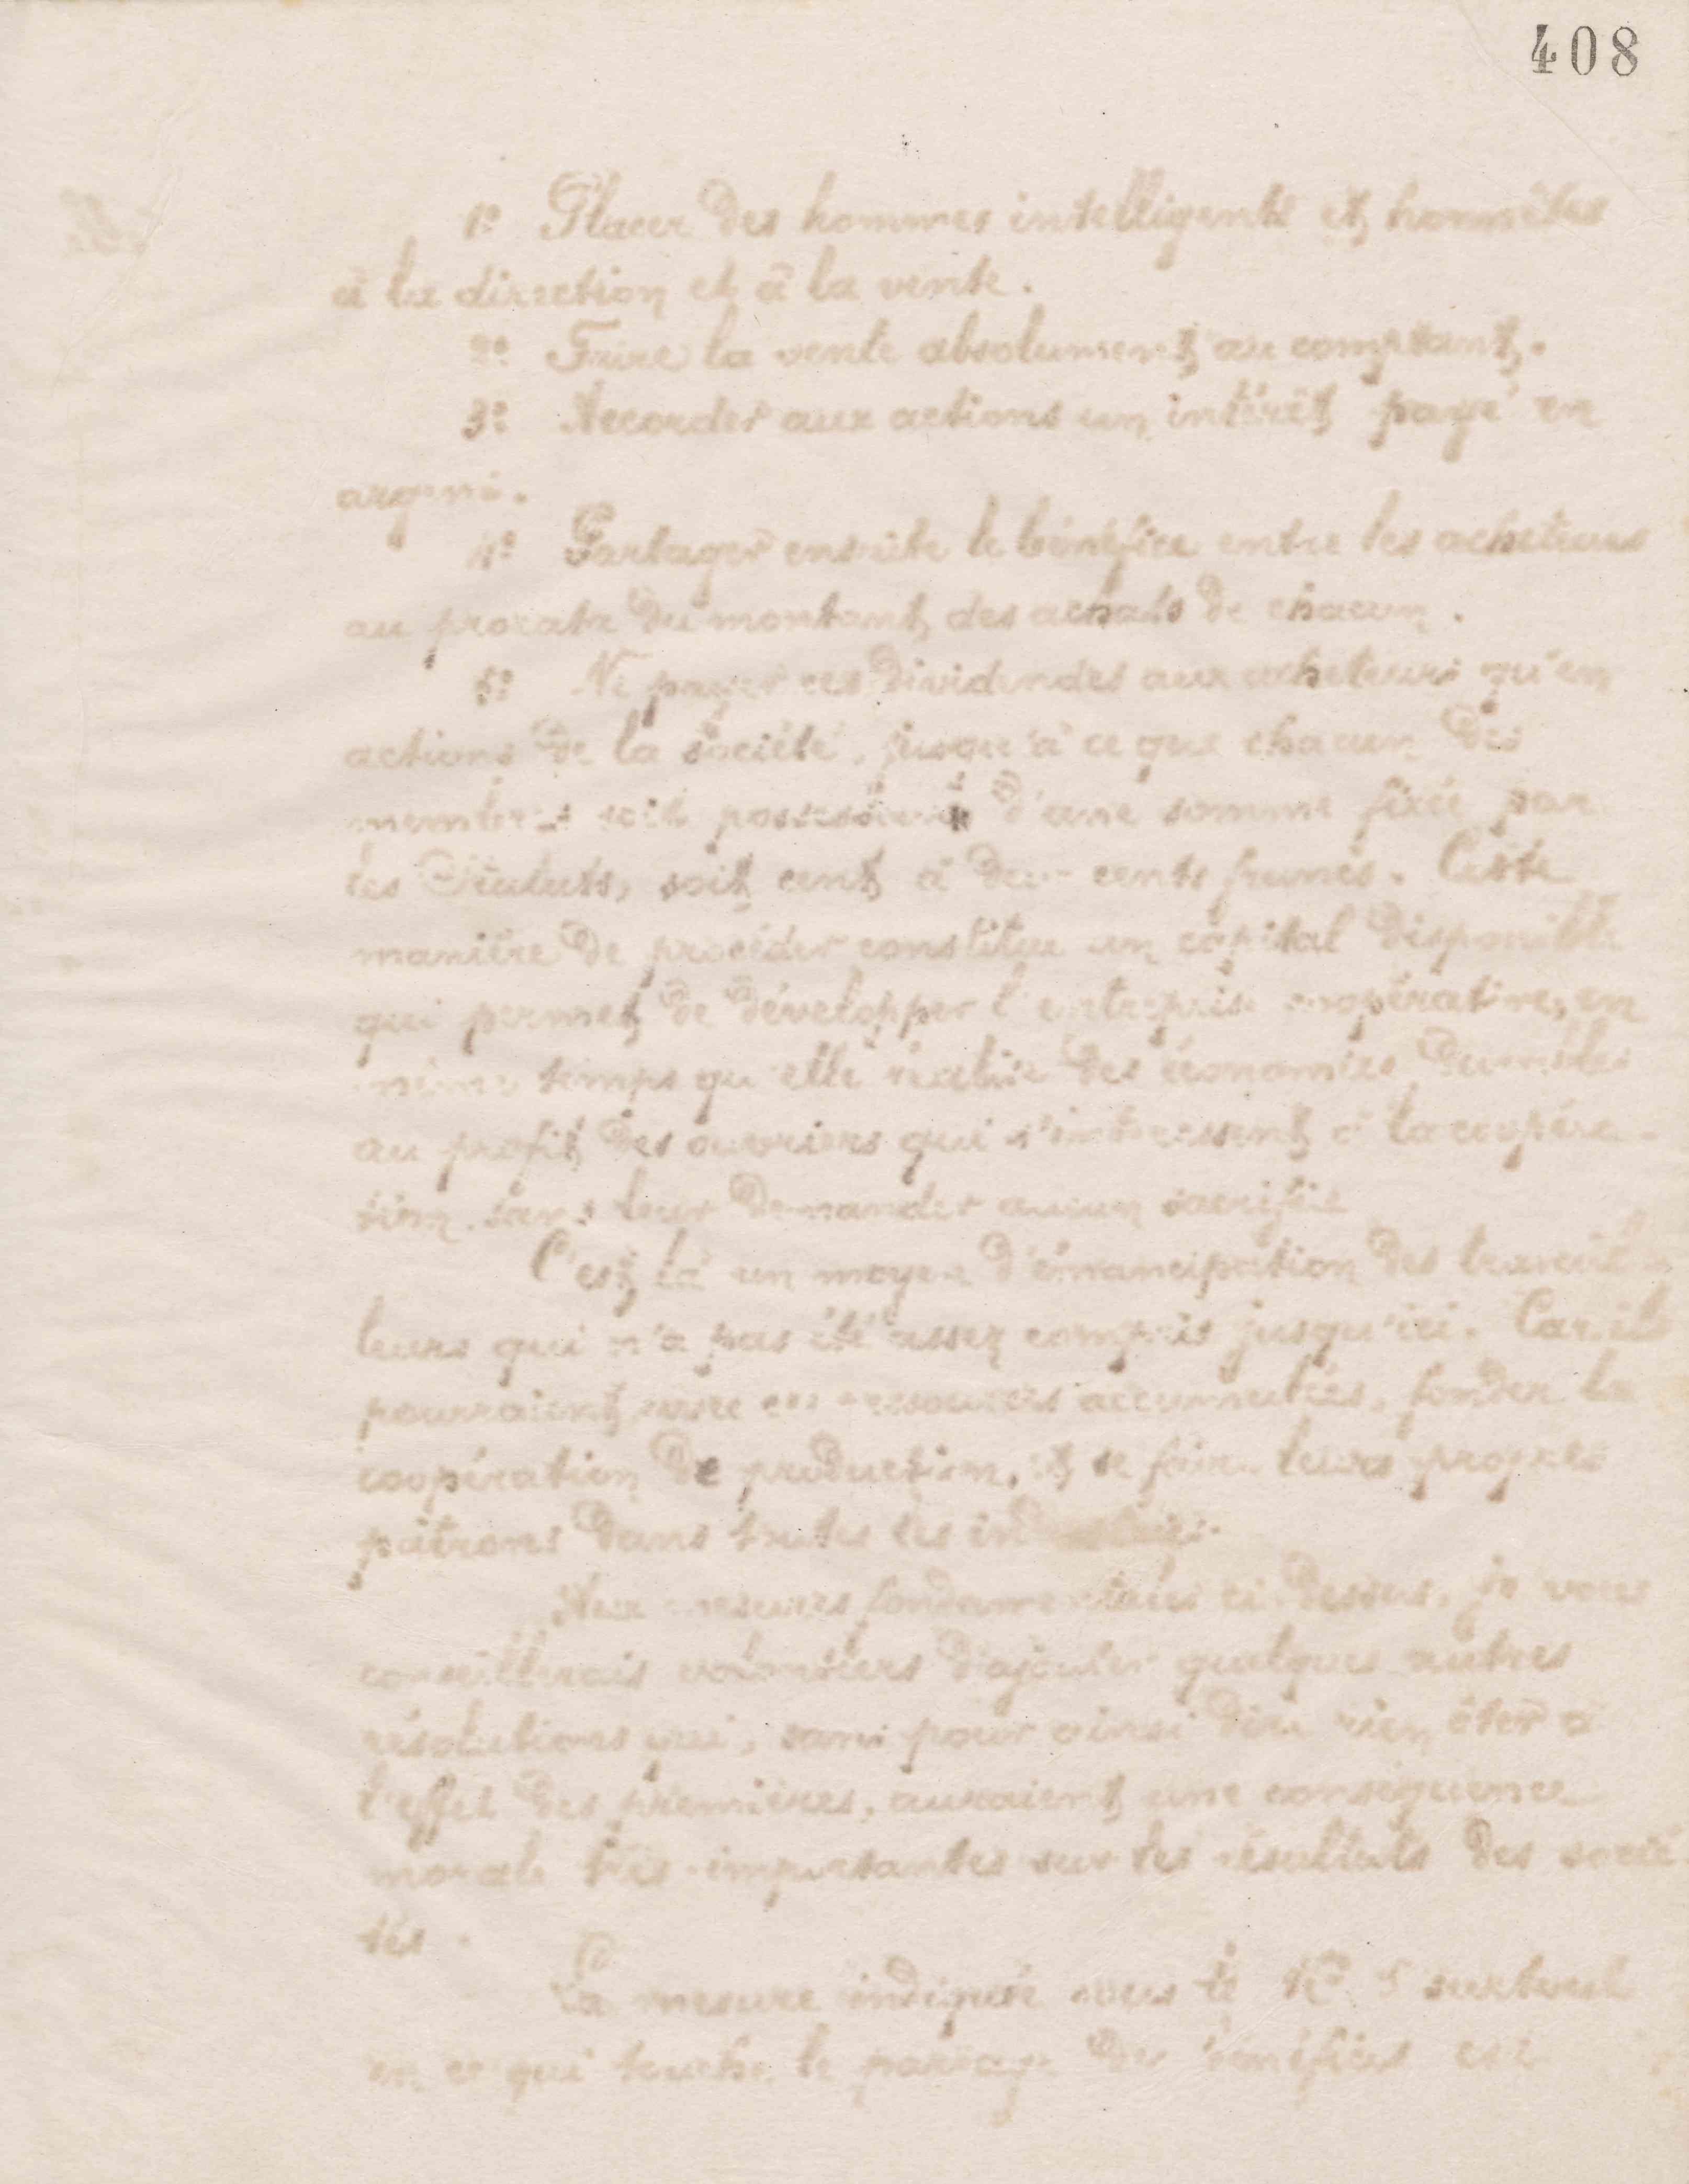 408
1º Placer des hommes intelligents et honnêtes
à la direction et à la vente.
2º Faire la vente absolument au comptant.
3º Accorder aux actions un intérêt payé en
argent.
4º Partager ensuite le bénéfice entre les acheteurs
au prorata du montant des achats de chacun.
5º Ne payer ces dividendes aux acheteurs qu'en
actions de la société, jusqu'à ce que chacun des
membres soit possesseur d'une somme fixée par
les Statuts, soit cent à deux cents francs. Cette
manière de procéder constitue un capital disponible
qui permet de développer l'entreprise coopérative, en
même temps qu'elle réalise des économies durables
au profit des ouvriers qui s'intéressent à la coopéra-
tion sans leur demander aucun sacrifice
C'est là un moyen d'émancipation des travail-
leurs qui n'a pas été assez compris jusqu'ici. Car ils
pourraient, avec ces ressources accumulées, fonder la
coopération de production, et se faire leurs propres
patrons dans toutes les industries.
Aux mesures fondamentales ci-dessus, je vous
conseillerais volontiers d'ajouter quelques autres
résolutions qui, sans pour ainsi dire rien ôter à
l'effet des premières, auraient une conséquence
morale très importantes sur les résultats des socié
tés.
La mesure indiquée sous le Nº 5 surtout
en ce qui touche le partage des bénéfices est